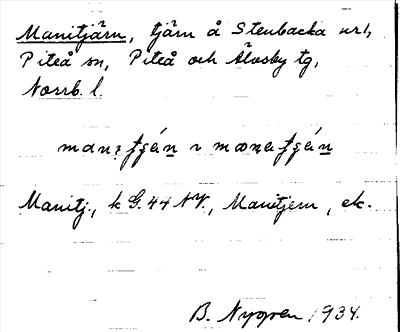 Manitjärn, tjärn å Stenbacka url,
Piteå sn, Piteå och Älvsby tg,
Norrb. l.
Manitj., k G. 44 NV., Manitjern, ek.
B. Nygren 1934.